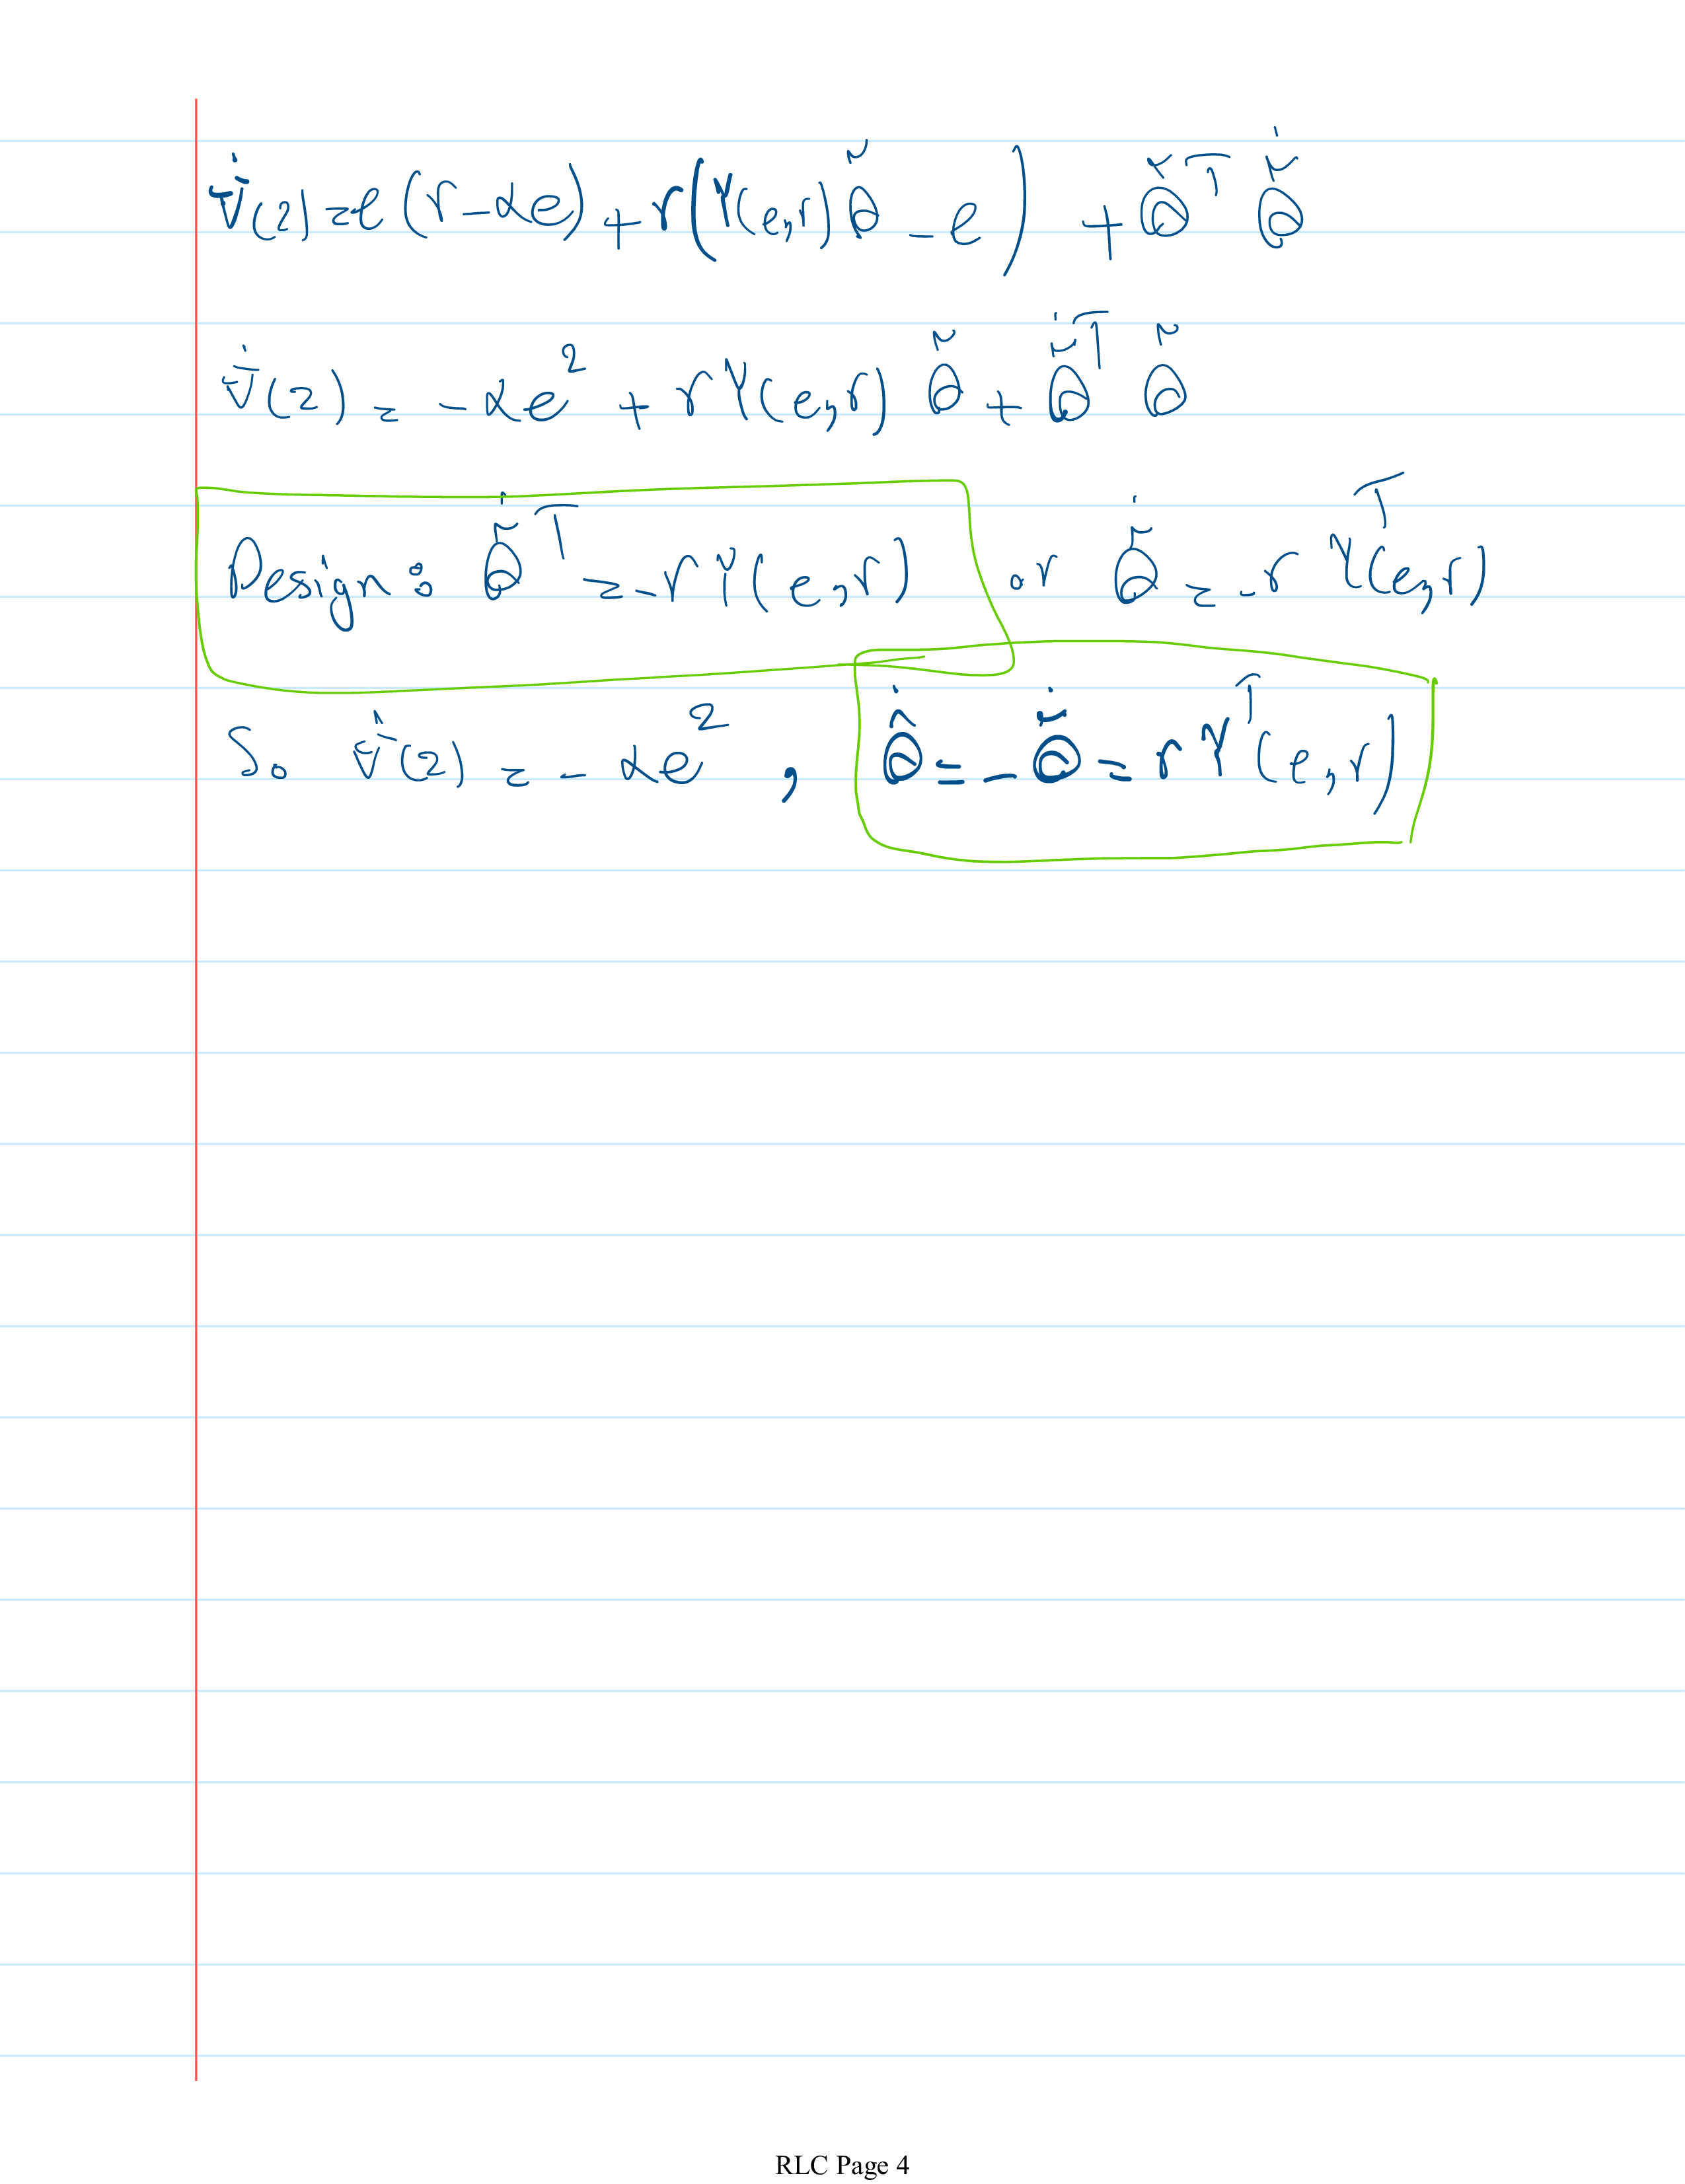 V̇(z) = e(r − αe) + r(Y(e,r)θ̃ − e) + θ̃ᵀ θ̃̇
V̇(z) = −αe² + rY(e,r) θ̃ + θ̃̇ᵀ θ̃
Design: θ̃̇ᵀ = −rY(e,r) or θ̃̇ = −rYᵀ(e,r)
So V̇(z) = −αe², θ̂̇ = −θ̃̇ = rYᵀ(e,r)
RLC Page 4